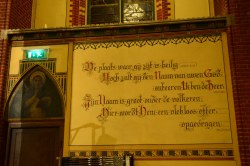 De plaats waar gij zijt is heilig
Noch zult gij den Naam van uwen God
onteeren Ik ben de Heer
Zijn Naam is groot onder de volkeren
Hier wordt Dem een rein offer
opgedragen